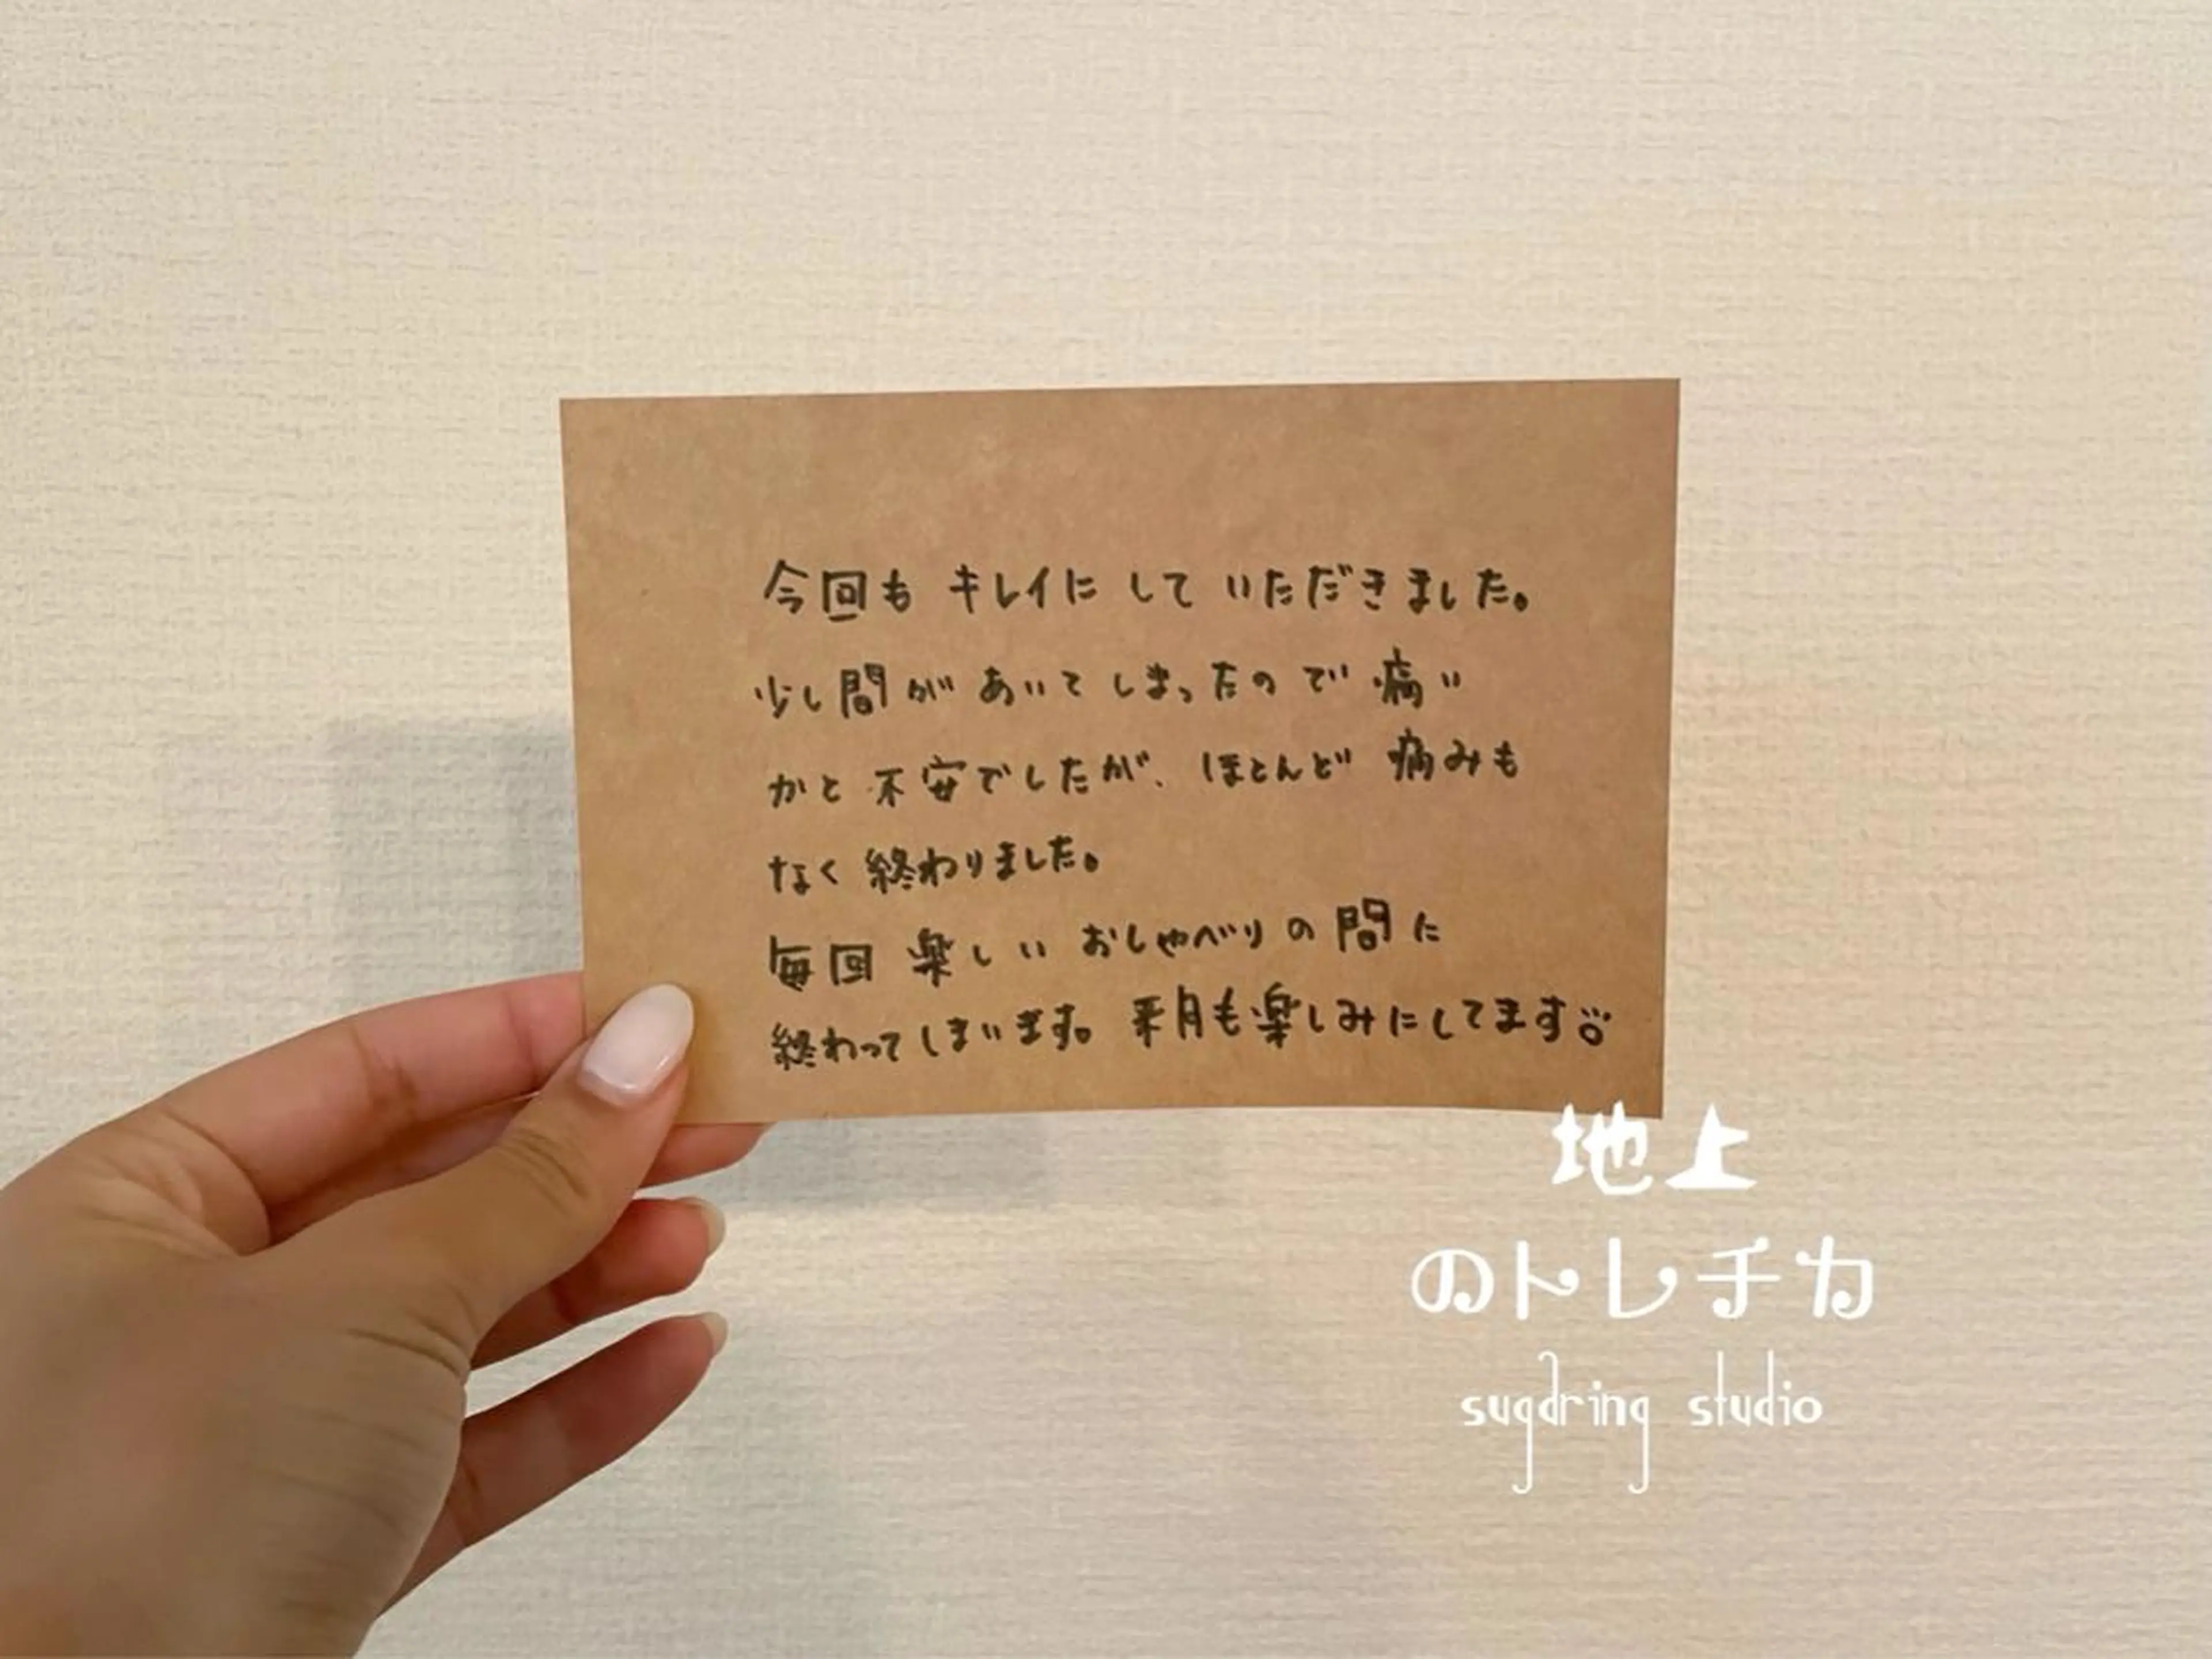 今回も キレイに して いただきました。
少し間が あいて しまったので 痛い
かと 不安でしたが、ほとんど 痛みも
なく 終わりました。
毎回 楽しい おしゃべり の 間に
終わって しまいます。来月も楽しみにしてます
地上
のトレチカ
sugaring studio